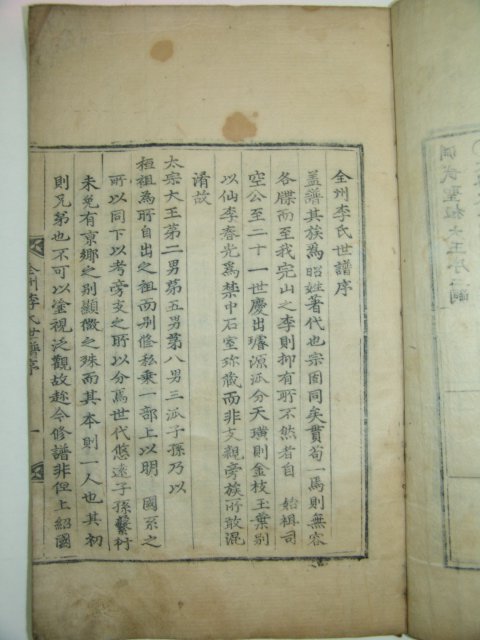 全州李氏世譜序
盖譜其族為昭姓著代也宗固同矣貫苟一焉則無容
各牒而至我完山之李則抑有所不然者自 始祖司
空公至二十一世慶出璿源泒分天璜則金枝玉葉別
以仙李春光爲禁中石室珎藏而非支親旁族所敢混
淆故
太宗大王第二男第五男第八男三泒子孫乃以
桓祖為所自出之祖而別修私乗一部上以明 國系之
所以同下以考旁支之所以分焉世代悠遠子孫蘩衍
未免有京郷之別顯微之殊而其本則一人也其初
則兄弟也不可以塗視泛觀故趂今修譜非但上紹國
全州李氏世譜序
一